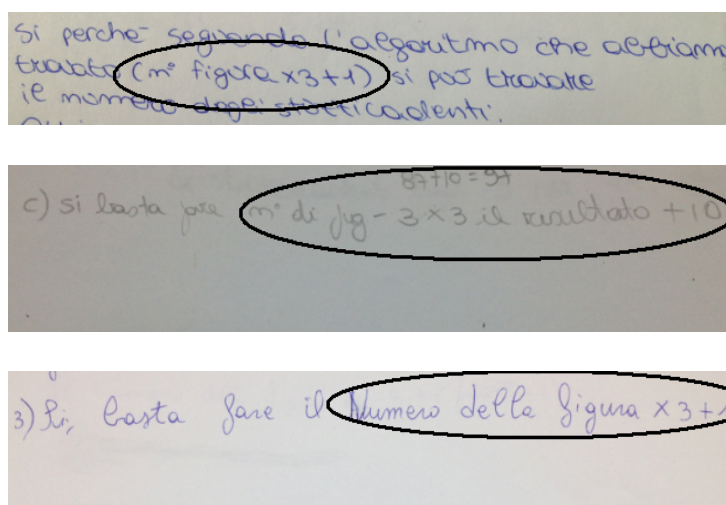 Si perché seguendo l'algoritmo che abbiam
trovato (n° figura x3+1) si può trovare
il numero degli stuzzicadenti.
87+10=97
c) si basta fare n° di fig - 3 x 3 il risultato + 10
3) Si, basta fare il Numero della figura x 3+1